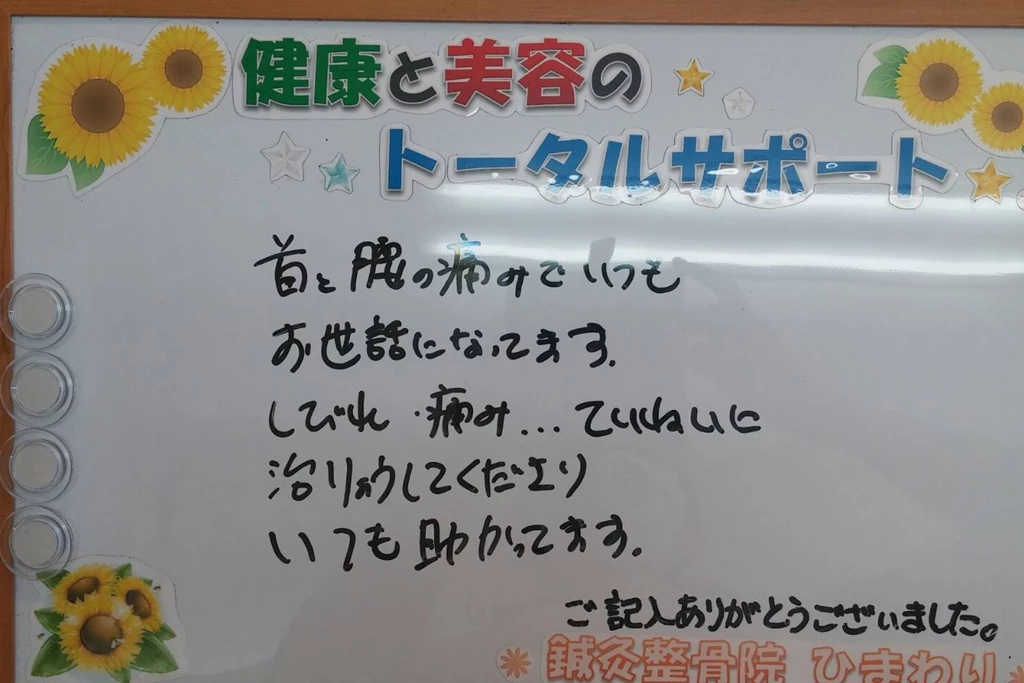 健康と美容の
トータルサポート
首と腰の痛みでいつも
お世話になってます.
しびれ・痛み...ていねいに
治りょうしてくださり
いつも助かってます.
ご記入ありがとうございました。
鍼灸整骨院 ひまわり